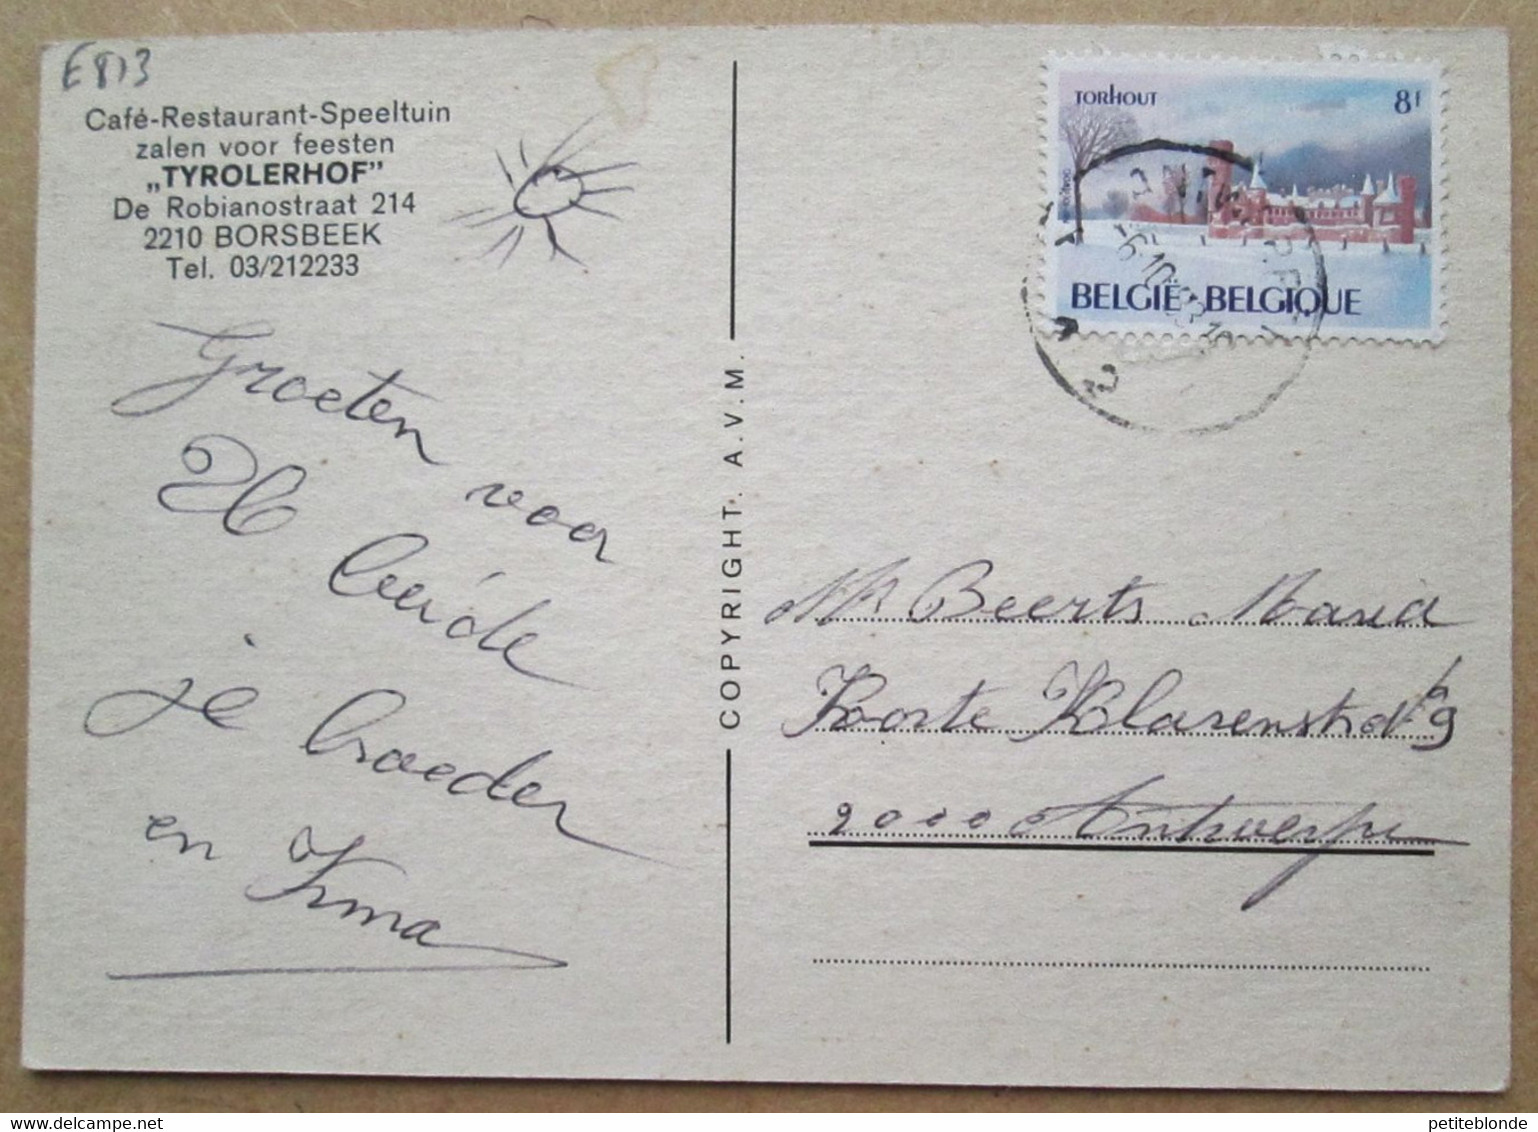 E813
Café-Restaurant-Speeltuin
zalen voor feesten
„TYROLERHOF”
De Robianostraat 214
2210 BORSBEEK
Tel. 03/212233
Groeten voor
U beide
je broeder
en Irma
COPYRIGHT. A.V.M.
TORHOUT 8f
BELGIË-BELGIQUE
Beerts Maria
Korte Klarenstr 9
2000 Antwerpe
petiteblonde